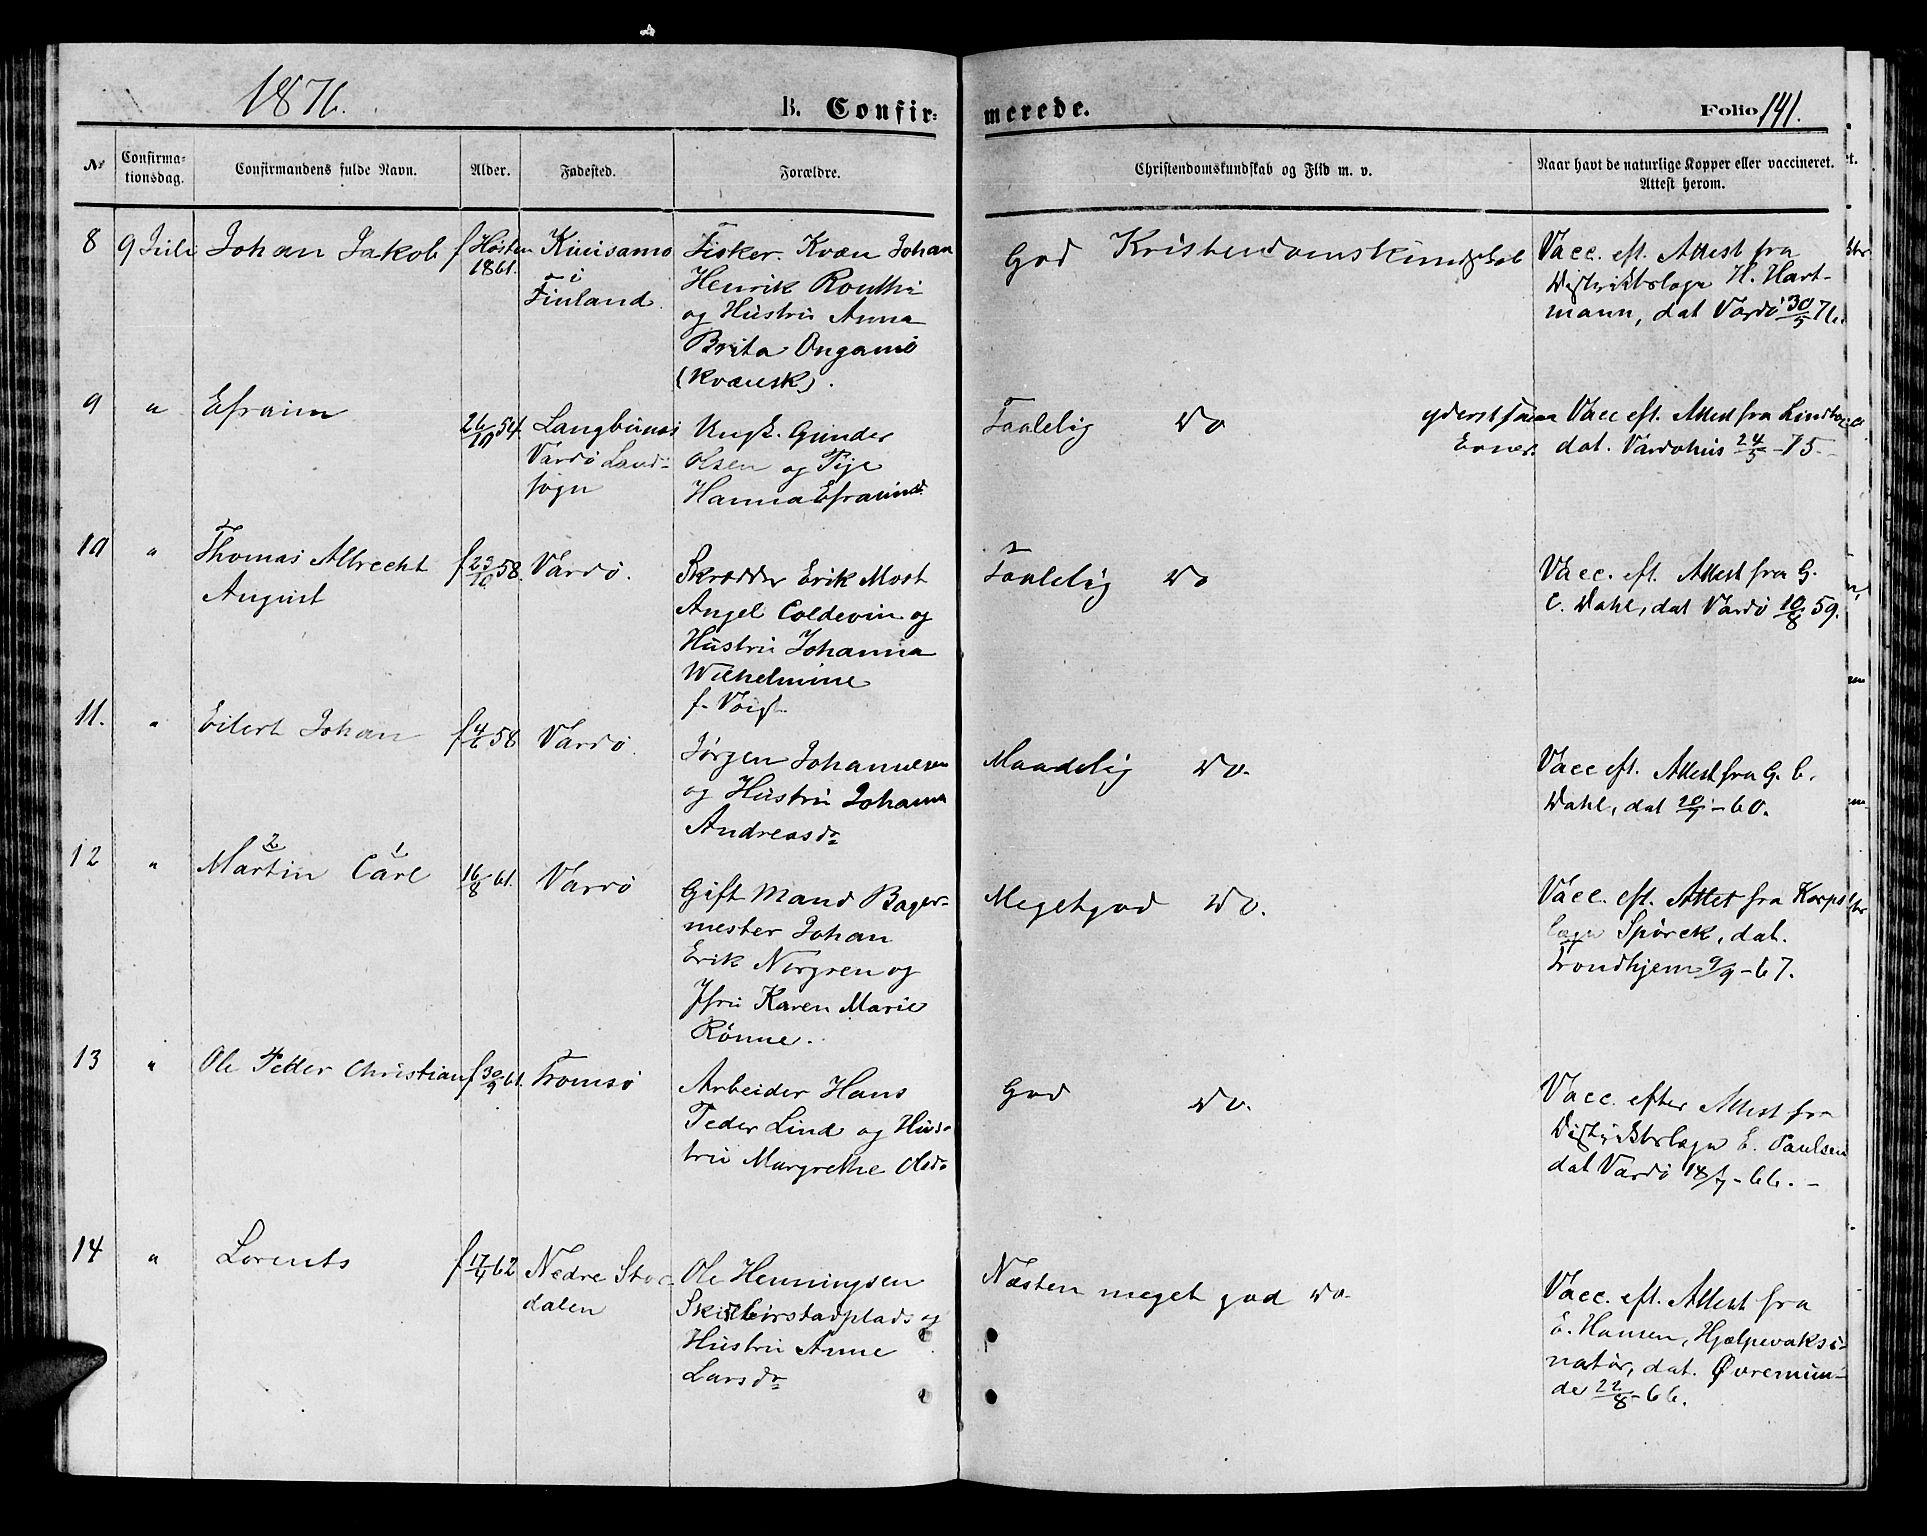 1876.
B. Confir-
merede.
Folio 141.
Nr
Confirma-
tionsdag.
Confirmandens fulde Navn.
Alder.
Fødested.
Forældre.
Christendomskundskab og Flid m. v.
Naar havt de naturlige Kopper eller vaccineret.
Attest herom.
8 9 Juli Johan Jakob f Høsten 1861. Kuusamo i Finland
Fisker. Kvæn Johan
Henrik Routhi
og Hustru Anna
Brita Ongamo
(kvænsk).
God Kristendomskundskab
Vacc. eft. Attest fra
Distriktslæge H. Hart-
mann, dat Vardö 30/5 76.
9 " Efraim 26/10 54. Langbunæs
Vardö Land-
sogn
Ungk. Gunder
Olsen og Pige
Hanna Efraimsd.
Taalelig Do yderst
Evner.
Vacc eft. Attest fra
dat. Vardöhus 24/5 - 75 -
10 " Thomas Albrecht
August
f 23/10 58. Vardö.
Skrædder Erik Most
Angel Coldevin og
Hustru Johanna
Wilhelmine
f. Voigt.
Taalelig Do
Vacc. eft. Attest fra G.
C. Dahl, dat Vardö 10/8 59.
11. " Eilert Johan f 4/6 58 Vardö.
Jørgen Johannesen
og Hustru Johanna
Andreasdr
Maadelig Do.
Vacc eft. Attest fra G. C.
Dahl, dat 20/7 - 60.
12 " Martin 2 Carl 1 16/8 61. Vardö
Gift Mand Bager-
mester Johan
Erik Norgren og
Jfru Karen Marie
Rönne.
Megetgod Do.
Vacc. eft. Attet fra Korps
læge Spörck, dat.
Trondhjem 9/9 - 67.
13 " Ole Peder Christian f 30/9 61. Tromsö
Arbeider Hans
Peder Lind og Hus-
tru Margrethe Olsdr
God Do.
Vacc. efter Attest fra
Distriktslæge E. Paulsen
dat Vardö 18/7 - 66. -
14 " Lorents f 17/4 62 Nedre Stor-
dalen
Ole Henningsen
og
Hustru Anne
Larsdr
Næsten meget god Do.
Vacc. eft. Attest fra
Ö. Hansen, Hjælpevaksi-
natör, dat. Øvremun-
de 22/8 - 66.